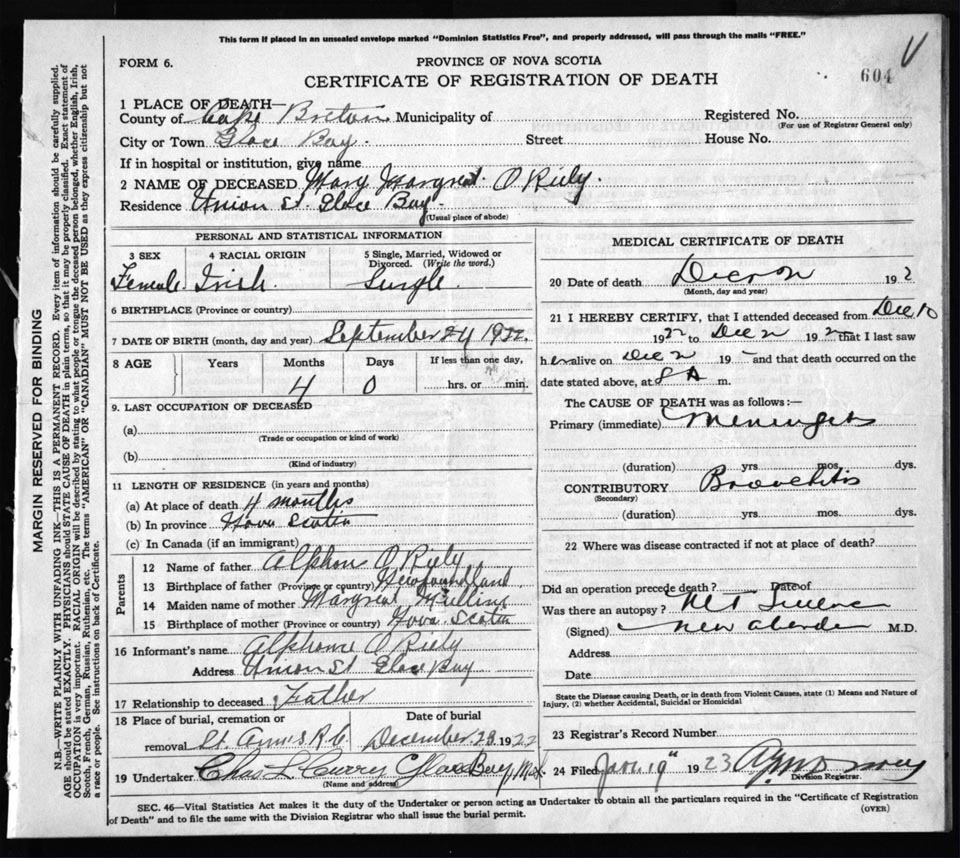 This form if placed in an unsealed envelope marked "Dominion Statistics Free", and properly addressed, will pass through the mails "FREE."
FORM 6.
PROVINCE OF NOVA SCOTIA
604
CERTIFICATE OF REGISTRATION OF DEATH
1 PLACE OF DEATH—
County of Cape Breton Municipality of Registered No.
(For use of Registrar General only)
City or Town Glace Bay. Street House No.
If in hospital or institution, give name
2 NAME OF DECEASED Mary Margreat O Riely.
Residence Union St Glace Bay.
(Usual place of abode)
PERSONAL AND STATISTICAL INFORMATION
3 SEX 4 RACIAL ORIGIN 5 Single, Married, Widowed or Divorced. (Write the word.)
Female. Irish. Single
6 BIRTHPLACE (Province or country)
7 DATE OF BIRTH (month, day and year) September 24 1922
8 AGE Years Months Days If less than one day,
4 0 hrs. or min.
9. LAST OCCUPATION OF DECEASED
(a)
(Trade or occupation or kind of work)
(b)
(Kind of industry)
11 LENGTH OF RESIDENCE (in years and months)
(a) At place of death 4 months
(b) In province Nova Scotia
(c) In Canada (if an immigrant)
Parents
12 Name of father Alphons O Riely
13 Birthplace of father (Province or country) Newfoundland
14 Maiden name of mother Margreat Mullins
15 Birthplace of mother (Province or country) Nova Scotia
16 Informant's name Alphonse O Riely
Address Union St Glace Bay
17 Relationship to deceased Father
18 Place of burial, cremation or Date of burial
removal St. Ann's R C December 23 1922
19 Undertaker Chas L Curry Glace Bay
(Name and address)
MEDICAL CERTIFICATE OF DEATH
20 Date of death 192
(Month, day and year)
21 I HEREBY CERTIFY, that I attended deceased from Dec 10
1922 to Dec 192 that I last saw
her alive on Dec 19 and that death occurred on the
date stated above, at 8 A m.
The CAUSE OF DEATH was as follows:—
Primary (immediate) Meningets
(duration) yrs. mos. dys.
CONTRIBUTORY Bronchitis
(Secondary)
(duration) yrs. mos. dys.
22 Where was disease contracted if not at place of death?
Did an operation precede death? Date of
Was there an autopsy?
(Signed) New Aberdeen M.D.
Address
Date
State the Disease causing Death, or in death from Violent Causes, state (1) Means and Nature of
Injury, (2) whether Accidental, Suicidal or Homicidal
23 Registrar's Record Number
24 Filed Jan. 19" 1923
Division Registrar.
SEC. 46—Vital Statistics Act makes it the duty of the Undertaker or person acting as Undertaker to obtain all the particulars required in the "Certificate of Registration
of Death" and to file the same with the Division Registrar who shall issue the burial permit. (OVER)
MARGIN RESERVED FOR BINDING
N.B.—WRITE PLAINLY WITH UNFADING INK—THIS IS A PERMANENT RECORD. Every item of information should be carefully supplied.
AGE should be stated EXACTLY. PHYSICIANS should STATE CAUSE OF DEATH in plain terms, so that it may be properly classified. Exact statement of
OCCUPATION is very important. RACIAL ORIGIN will be described by stating to what people or tongue the deceased person belonged, whether English, Irish,
Scotch, French, German, Russian, Ruthenian, etc. The terms "AMERICAN" OR "CANADIAN" MUST NOT BE USED as they express citizenship but not
a race or people. See instructions on back of Certificate.